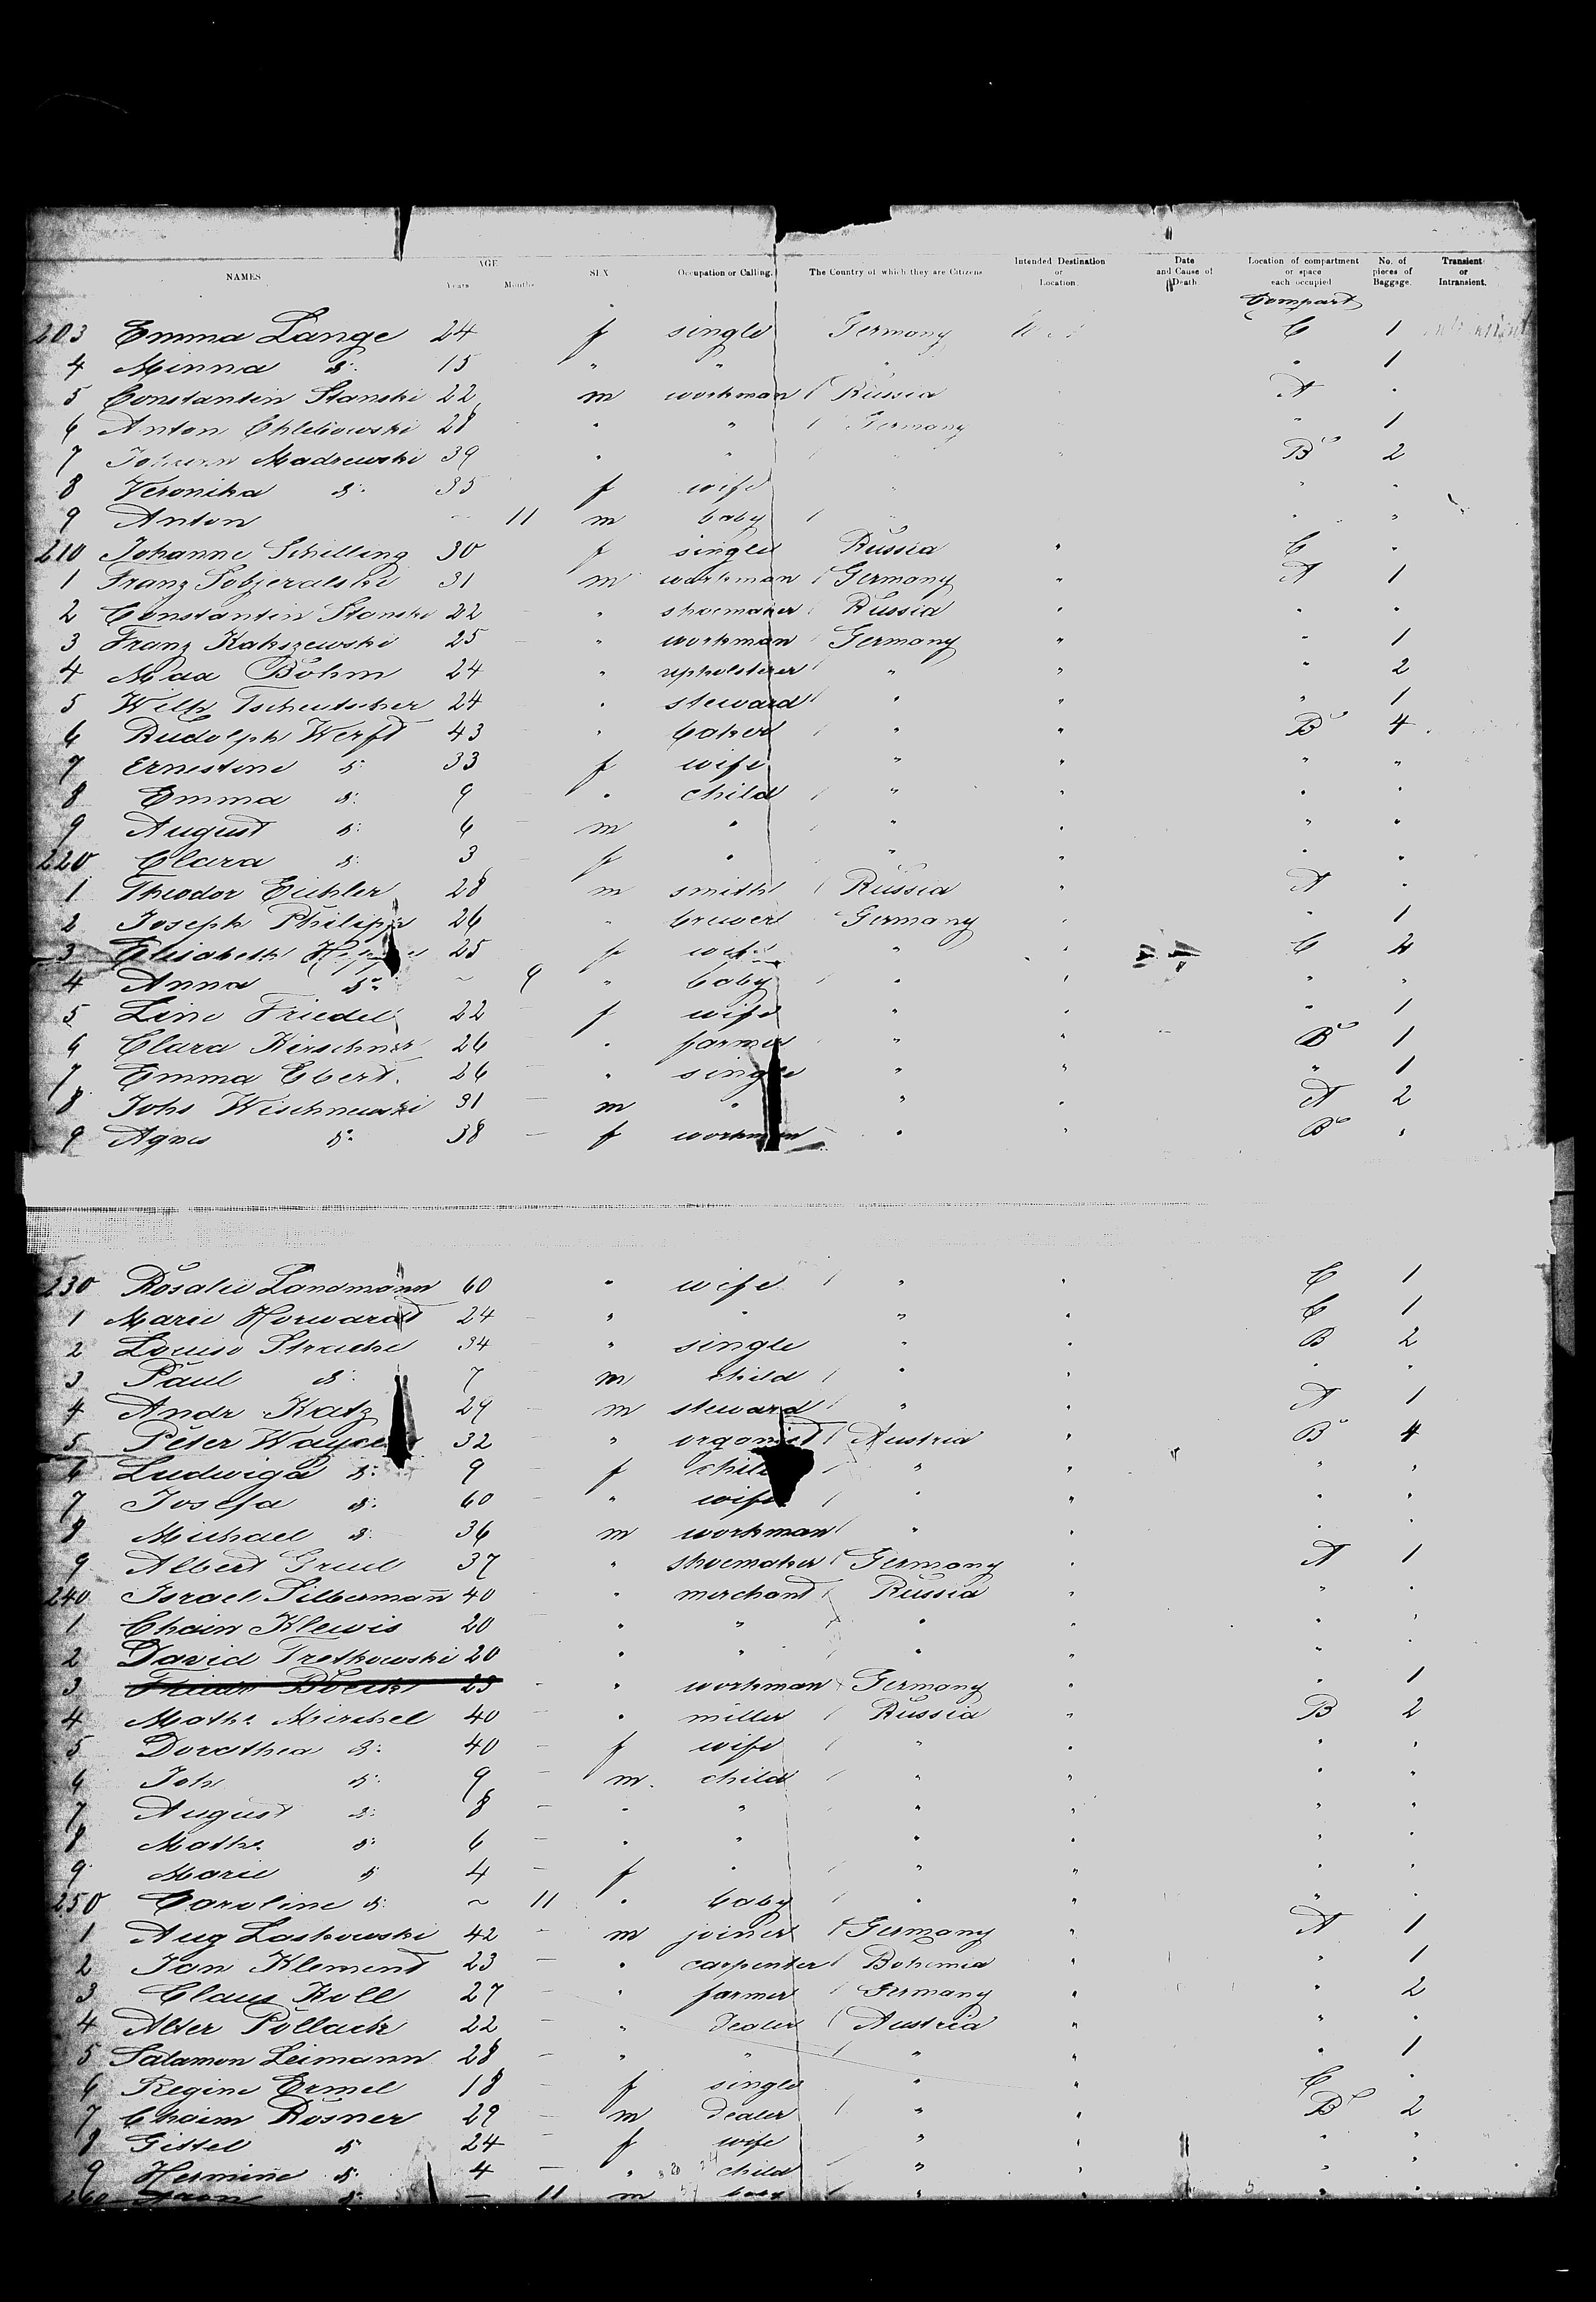 NAMES AGE Years Months SEX Occupation or Calling. The Country of which they are Citizens Intended Destination or Location. Date and Cause of Death Location of compartment or space each occupied No. of pieces of Baggage. Transient or Intransient.
Compart
203 Emma Lange 24 f single Germany C 1
4 Minna d: 15 " " " " 1
5 Constantin Stanski 22 m workman Russia A "
6 Anton Chlebowski 28 " " Germany " 1
7 Johann Madrewski 39 " " " " B 2
8 Veronika d: 35 f wife " " "
9 Anton — 11 m baby " "
210 Johanne Schilling 30 f single Russia " C "
1 Franz Sobzeralski 31 m workman Germany " A 1
2 Constantin Stanski 22 " shoemaker Russia " " "
3 Franz Kakszewski 25 " workman Germany " " 1
4 Max Böhm 24 " upholsterer " " " 2
5 Wilh Tscheutscher 24 " steward " " " 1
6 Rudolph Werft 43 " baker " " B 4
7 Ernestine d: 33 f wife " " " "
8 Emma d: 9 " child " " " "
9 August d: 6 m " " " " "
220 Clara d: 3 f " " " " "
1 Theodor Eichler 28 m smith Russia " A "
2 Joseph Philipp 26 " brewer Germany " " 1
3 Elisabeth 25 f wife " " C 2
4 Anna d: ~ 9 " baby " " " "
5 Line Friedel 22 f wife " " " 1
6 Clara Kirschner 26 " farmer " " B 1
7 Emma Ebert. 26 " single " " " 1
8 Johs Wischnewski 31 m " " " A 2
9 Agnes d: 38 f workman " " B "
230 Rosalie Landmann 60 " wife " " C 1
1 Marie Horwardt 24 " " " " C 1
2 Louise Strache 34 " single " " B 2
3 Paul d: 7 m child " " " "
4 Andr Katz 29 m steward " " A 1
5 Peter 32 " organist Austria " B 4
6 Ludwiga d: 9 f child " " " "
7 Josefa d: 60 " wife " " " "
8 Michael d: 36 m workman " " " "
9 Albert Grud 37 " shoemaker Germany " A 1
240 Israel Silbermañ 40 " merchant Russia " " "
1 Chain Klewis 20 " " " " " "
2 David Tretkowski 20 " " " " " "
3 23 " workman Germany " " 1
4 Maths Mirschel 40 " miller Russia " B 2
5 Dorothea d: 40 f wife " " " "
6 Joh d: 9 m. child " " " "
7 August d: 8 " " " " " "
8 Maths. d: 6 " " " " " "
9 Marie d 4 f " " " " "
250 Caroline d: ~ 11 " baby " " " "
1 Aug Laskowski 42 m joiner Germany " A 1
2 Jan Klement 23 " carpenter Bohemia " " 1
3 Claus Koll 27 " farmer Germany " " 2
4 Alter Pollack 22 " dealer Austria " " "
5 Salamon Leimann 28 " " " " " 1
6 Regine Ermel 18 f single " " C "
7 Chaim Rosner 29 m dealer " " B 2
8 Gittel d 24 f wife " " " "
9 Hermine d: 4 " child " " " "
260 d: — 11 m baby " " " "